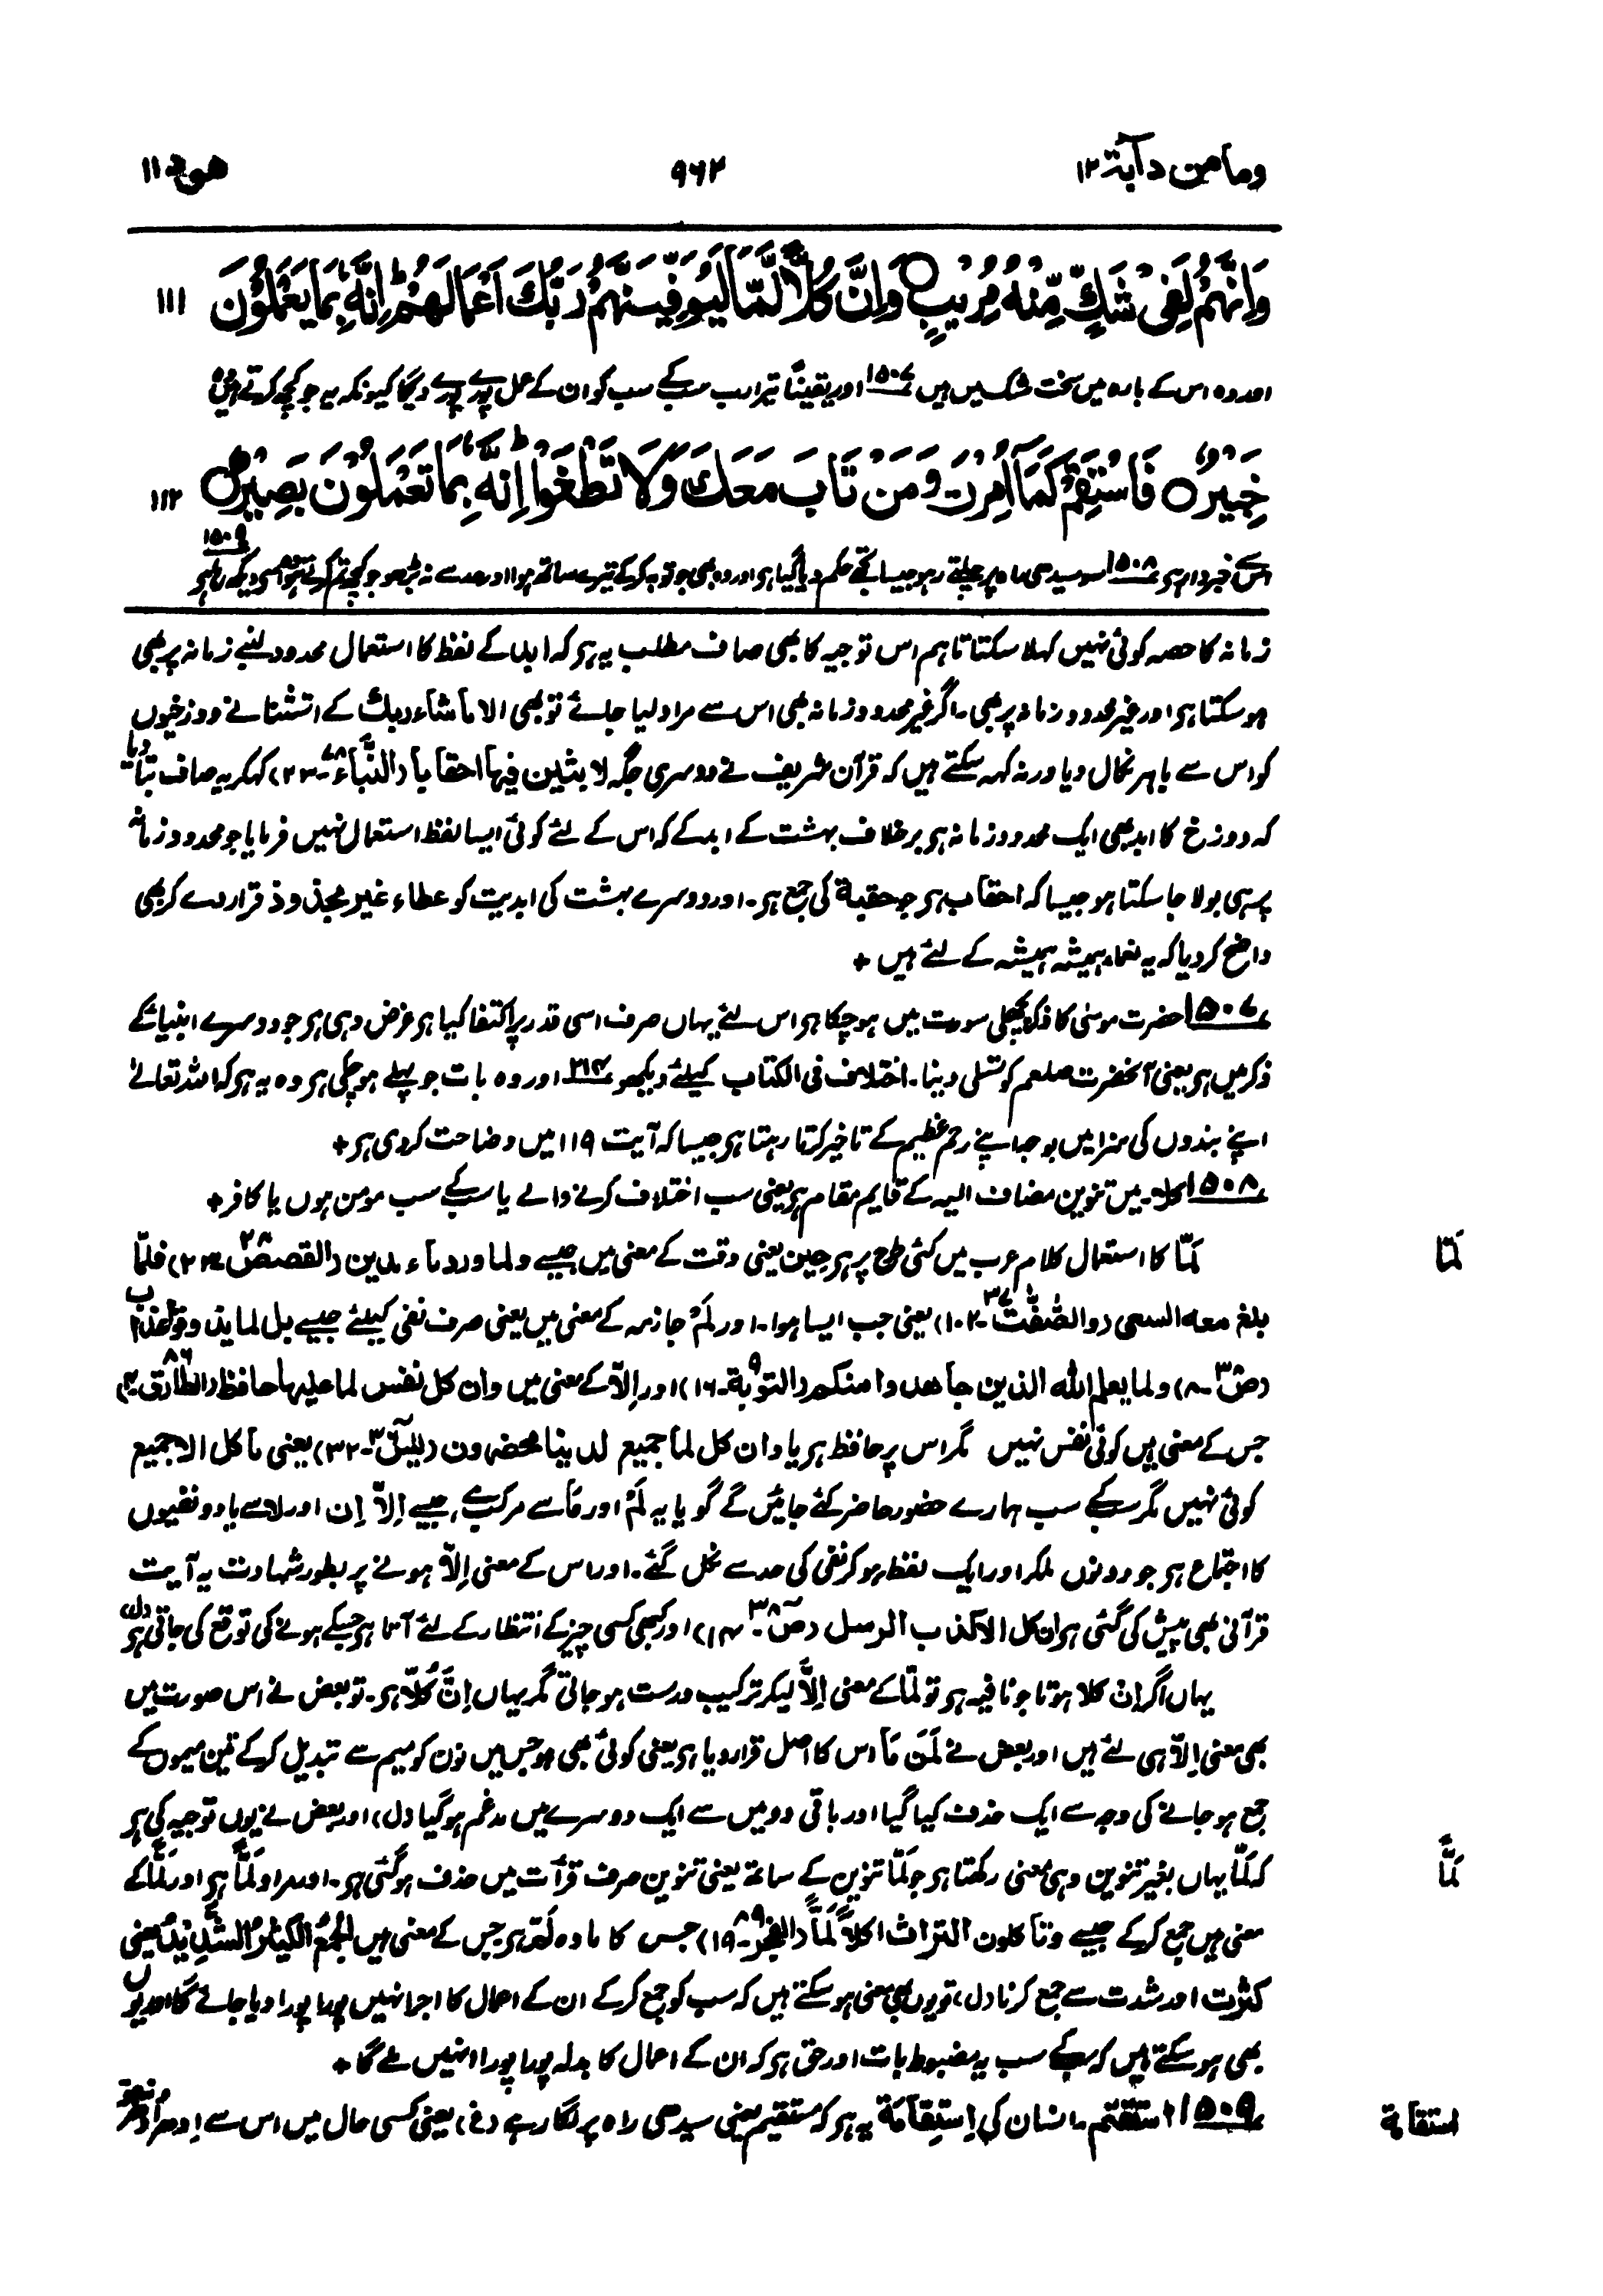 ومامن دآبة ١٢
٩٦٢
هود ١١
وَاِنَّهُمْ لَفِیْ شَكٍّ مِّنْهُ مُرِیْبٍ ○ وَاِنَّ كُلًّا لَّمَّا لَیُوَفِّیَنَّهُمْ رَبُّكَ اَعْمَالَهُمْ ؕ اِنَّهٗ بِمَا یَعْمَلُوْنَ
١١١
اور وہ اس کے بارہ میں سخت شک میں ہیں ١٥٠٧ اور یقیناً تیرا رب سب کے سب کو ان کے عمل پورے پورے دیگا کیونکہ یہ جو کچھ کرتے ہیں وہ
خَبِیْرٌ ○ فَاسْتَقِمْ كَمَاۤ اُمِرْتَ وَ مَنْ تَابَ مَعَكَ وَلَا تَطْغَوْا ؕ اِنَّهٗ بِمَا تَعْمَلُوْنَ بَصِیْرٌ ○
١١٢
اس سے خبردار ہے ١٥٠٨ سو سیدھی راہ پر چلتے رہو جیسا تجھے حکم دیا گیا ہے اور وہ بھی جو توبہ کرکے تیرے ساتھ ہوا اور حد سے نہ بڑھو جو کچھ تم کرتے ہو وہ اسے دیکھ رہا ہے ١٥٠٩
زمانہ کا حصہ کوئی نہیں کہلا سکتا تاہم اس توجیہ کا بھی صاف مطلب یہ ہے کہ ابد کے لفظ کا استعمال محدود لنبے زمانہ پر بھی
ہو سکتا ہے اور غیر محدود زمانہ پر بھی۔ اگر غیر محدود زمانہ بھی اس سے مراد لیا جائے تو بھی الا ماشاء ربك کے استثنا نے دوزخیوں
کو اس سے باہر نکال دیا ورنہ کہہ سکتے ہیں کہ قرآن شریف نے دوسری جگہ لابثین فیھا احقابا (النَّبَا ٧٨۔٢٣) کہکر یہ صاف بتا دیا
کہ دوزخ کا ابد بھی ایک محدود زمانہ ہے برخلاف بہشت کے ابد کے کہ اس کے لئے کوئی ایسا لفظ استعمال نہیں فرمایا جو محدود زمانہ
پر ہی بولا جا سکتا ہو جیسا کہ احقاب ہے جو حقبة کی جمع ہے۔ اور دوسرے بہشت کی ابدیت کو عطاء غیر مجذوذ قرار دے کر بھی
واضح کر دیا کہ یہ نعماء ہمیشہ ہمیشہ کے لئے ہیں +
١٥٠٧ حضرت موسیٰ کا ذکر پچھلی سورت میں ہو چکا ہے اس لئے یہاں صرف اسی قدر پر اکتفا کیا ہے غرض وہی ہے جو دوسرے انبیا کے
ذکر میں ہے یعنی آنحضرت صلعم کو تسلی دینا۔ اختلاف فی الکتاب کیلئے دیکھو ٢١٣ اور وہ بات جو پہلے ہو چکی ہے وہ یہ ہے کہ اللہ تعالےٰ
اپنے بندوں کی سزا میں بوجہ اپنے رحم عظیم کے تاخیر کرتا رہتا ہے جیسا کہ آیت ١١٩ میں وضاحت کر دی ہے +
١٥٠٨ کلا۔ میں تنوین مضاف الیہ کے قایم مقام ہے یعنی سب اختلاف کرنے والے یا سب کے سب مومن ہوں یا کافر +
لَمَّا
لَمَّا کا استعمال کلام عرب میں کئی طرح پر ہے حِین یعنی وقت کے معنی میں جیسے ولما ورد ماء مدین (القصص ٢٨۔٢٣) فلمّا
بلغ معه السعی (والصّٰفّٰت ٣٧۔١٠٢) یعنی جب ایسا ہوا۔ اور لَمْ جازمہ کے معنی میں یعنی صرف نفی کیلئے جیسے بل لما یذوقوا عذاب
(صٓ ٣٨۔٨) ولما یعلم الله الذین جاھدوا منکم (التوبة ٩۔١٦) اور اِلّا کے معنی میں وان کل نفس لما علیھا حافظ (الطارق ٨٦۔٤)
جس کے معنی ہیں کوئی نفس نہیں مگر اس پر حافظ ہے یا وان کل لما جمیع لدینا محضرون (یٰسٓ ٣٦۔٣٢) یعنی ما کل الا جمیع
کوئی نہیں مگر سب کے سب ہمارے حضور حاضر کئے جائیں گے گویا یہ لَمْ اور مَا سے مرکب ہے، جیسے اِلَّا اِن اور لا سے یا دو نفیوں
کا اجتماع ہے جو دونوں ملکر اور ایک لفظ ہو کر نفی کی حد سے نکل گئے۔ اور اس کے معنی اِلّا ہونے پر بطور شہادت یہ آیت
قرآنی بھی پیش کی گئی ہے ان کل الا کذب الرسل (صٓ ٣٨۔١٤) اور کبھی کسی چیز کے انتظار کے لئے آتا ہے جسکے ہونے کی توقع کی جاتی ہے (ل)
یہاں اگر اِنْ کلا ہوتا جو نافیہ ہے تو لمّا کے معنی اِلَّا لیکر ترکیب درست ہو جاتی مگر یہاں اِنَّ کُلًّا ہے۔ تو بعض نے اس صورت میں
بھی معنی اِلّا ہی لئے ہیں اور بعض نے لَمَن مَا اس کا اصل قرار دیا ہے یعنی کوئی بھی ہو جس میں نون کو میم سے تبدیل کرکے تین میموں کے
جمع ہو جانے کی وجہ سے ایک حذف کیا گیا اور باقی دو میں سے ایک دوسرے میں مدغم ہو گیا (ل) اور بعض نے یوں توجیہ کی ہے
لَمًّا
کہ لَمَّا یہاں بغیر تنوین وہی معنی رکھتا ہے جو لَمًّا تنوین کے ساتھ یعنی تنوین صرف قرأت میں حذف ہو گئی ہے۔ اور مراد لَمًّا ہے اور لَمًّا کے
معنی ہیں جمع کرکے جیسے وتاکلون التراث اکلاً لَمًّا (الفجر ٨٩۔١٩) جس کا مادہ لَمّ ہے جس کے معنی ہیں الجَمْعُ الکَثِیْرُ الشَّدِیْدُ یعنی
کثرت اور شدت سے جمع کرنا (ل) تو یوں بھی معنی ہو سکتے ہیں کہ سب کو جمع کرکے ان کے اعمال کا اجر انہیں پورا پورا دیا جائے گا اور یوں
بھی ہو سکتے ہیں کہ سب کے سب یہ مضبوط بات اور حق ہے کہ ان کے اعمال کا بدلہ پورا پورا انہیں ملے گا +
استقامة
١٥٠٩ استقم۔ انسان کی اِستِقامَة یہ ہے کہ مستقیم یعنی سیدھی راہ پر لگا رہے (غ) یعنی کسی حال میں اس سے اِدھر اُدھر نہ ہو